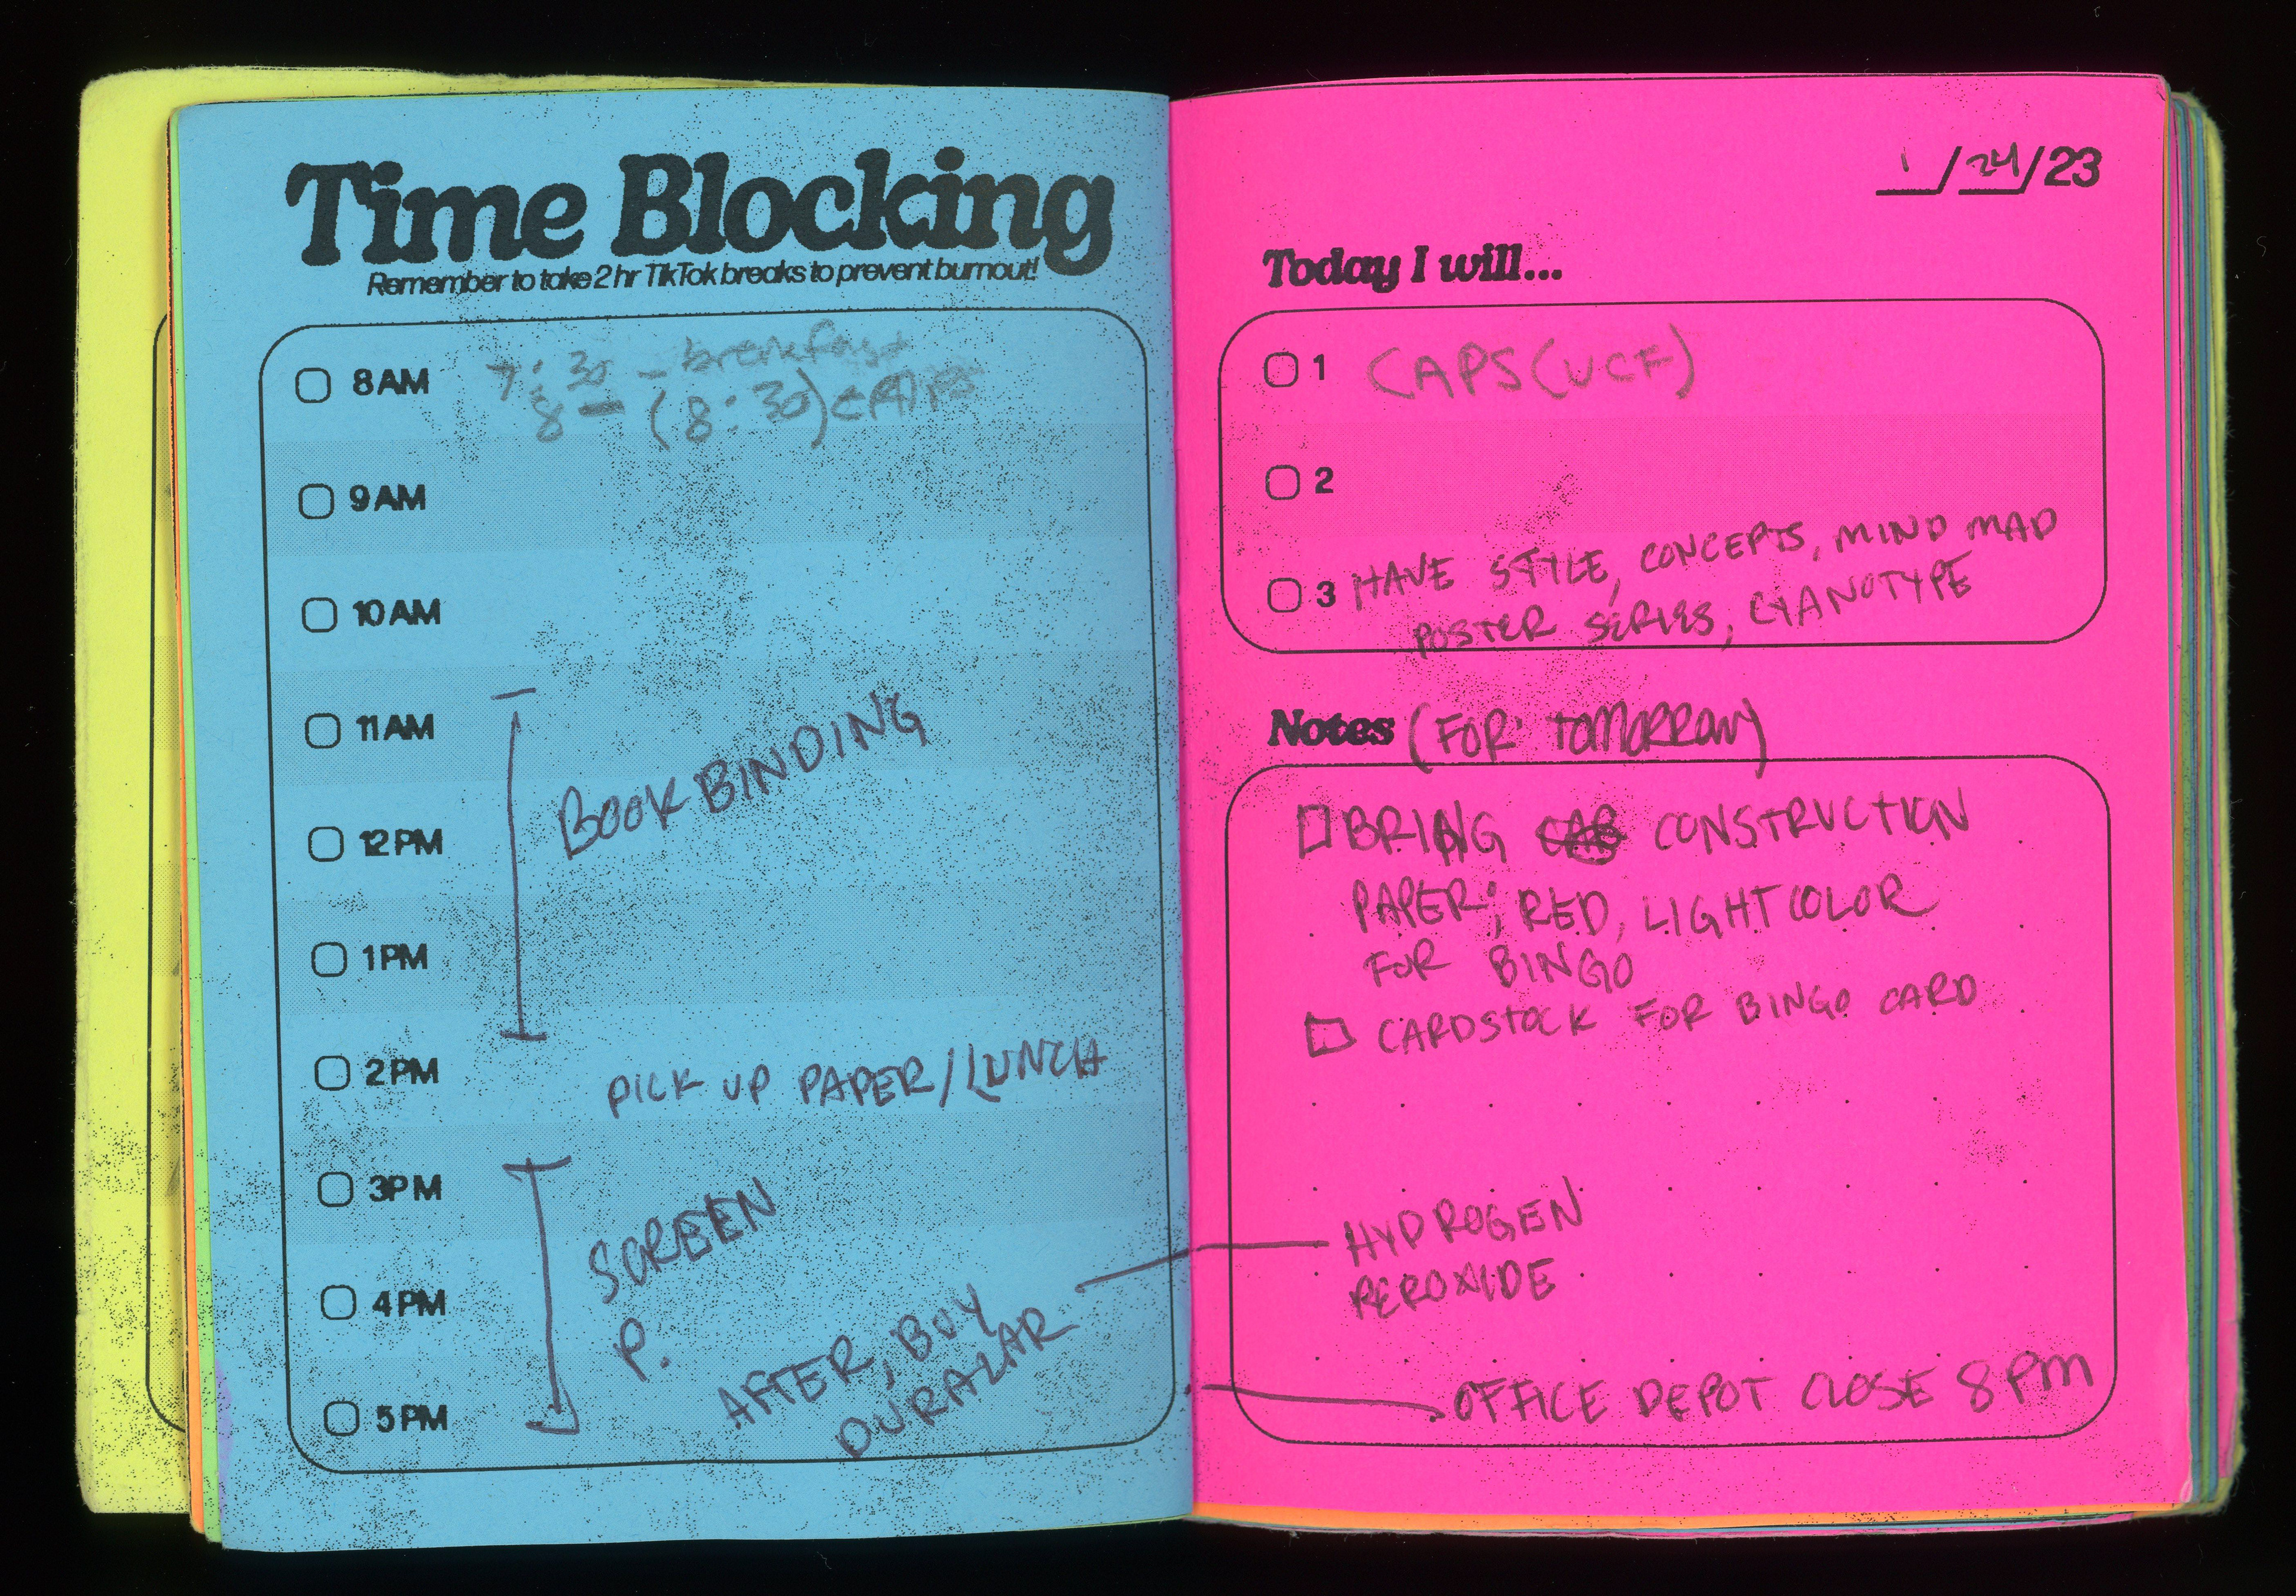 Time Blocking
Remember to take 2 hr TikTok breaks to prevent burnout!
8 AM 7:30 - breakfast
8 - (8:30) CAPS
9 AM
10 AM
11 AM
BOOK BINDING
12 PM
1 PM
2 PM PICK UP PAPER/LUNCH
3 PM
SCREEN
4 PM
P.
AFTER, BUY
DURALAR
5 PM
1/24/23
Today I will...
1 CAPS (UCF)
2
3 HAVE STYLE, CONCEPTS, MIND MAD
POSTER SERIES, CYANOTYPE
Notes (FOR TOMORROW)
BRING CONSTRUCTION
PAPER; RED, LIGHT COLOR
FOR BINGO
CARDSTOCK FOR BINGO CARD
HYDROGEN
PEROXIDE
OFFICE DEPOT CLOSE 8 PM